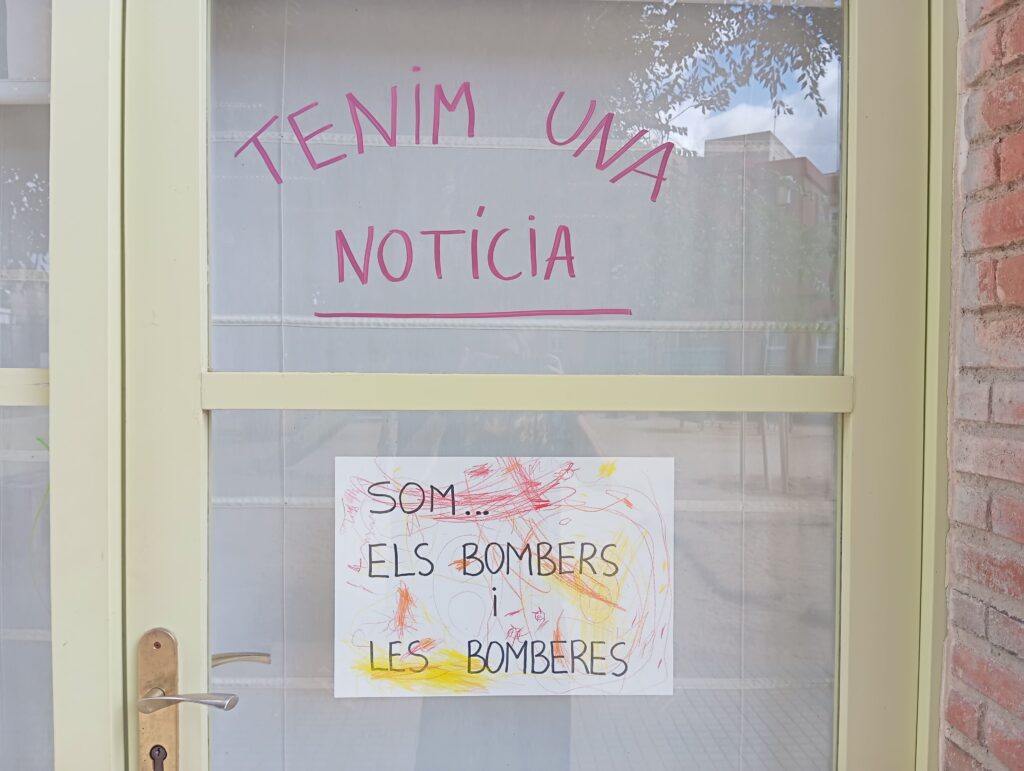 TENiM UNA
NOTÍCiA
SOM...
ELS BOMBERS
i
LES BOMBERES